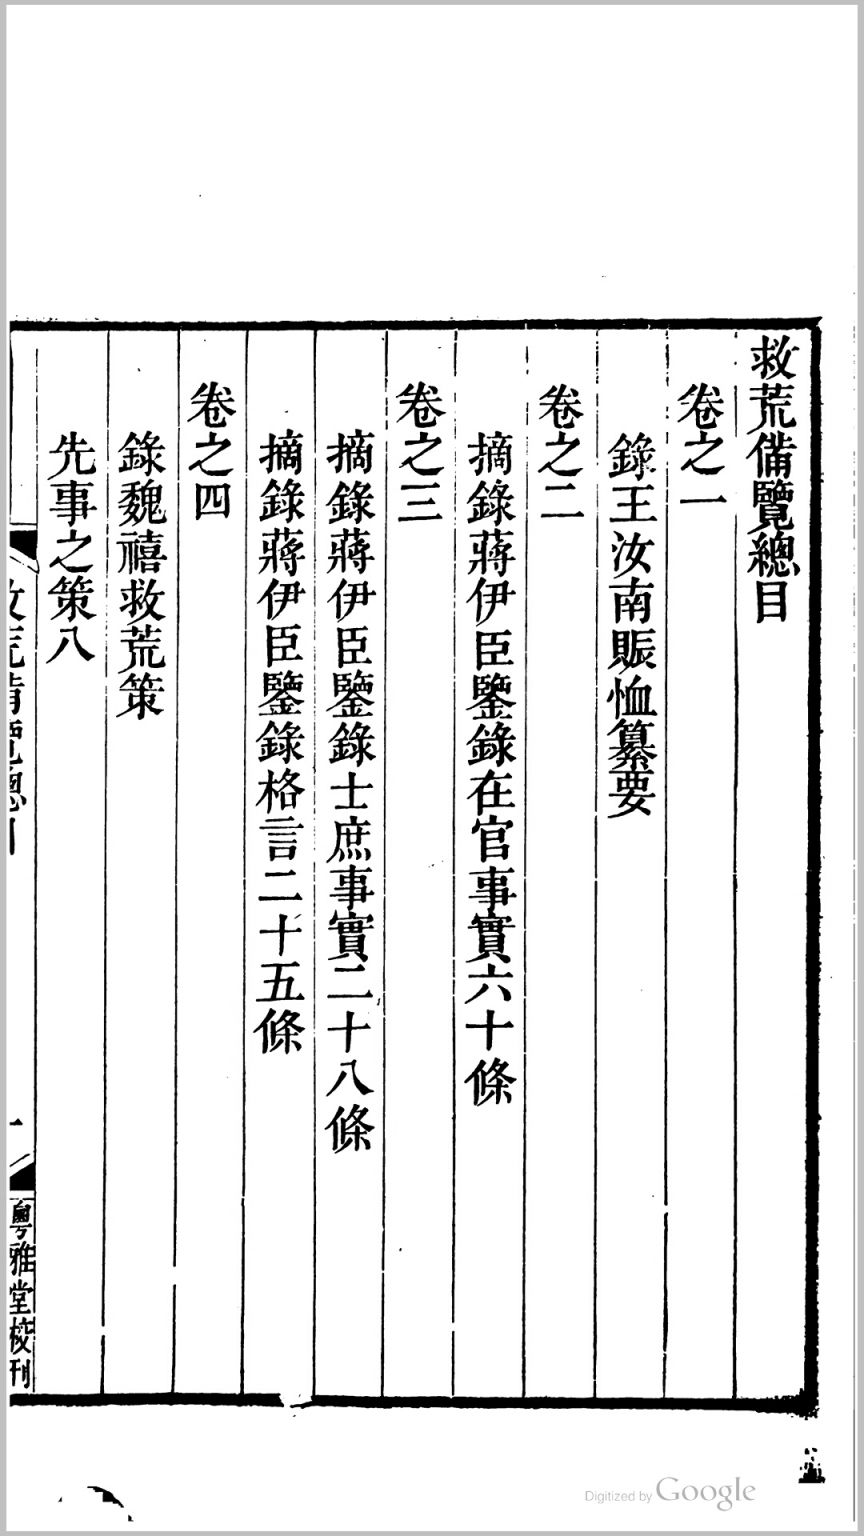 救荒備覽總目
卷之一
錄王汝南賑恤纂要
卷之二
摘錄蔣伊臣鑒錄在官事實六十條
卷之三
摘錄蔣伊臣鑒錄士庶事實二十八條
摘錄蔣伊臣鑒錄格言二十五條
卷之四
錄魏禧救荒策
先事之策八
救荒備覽總目
一
粵雅堂校刊
Digitized by Google